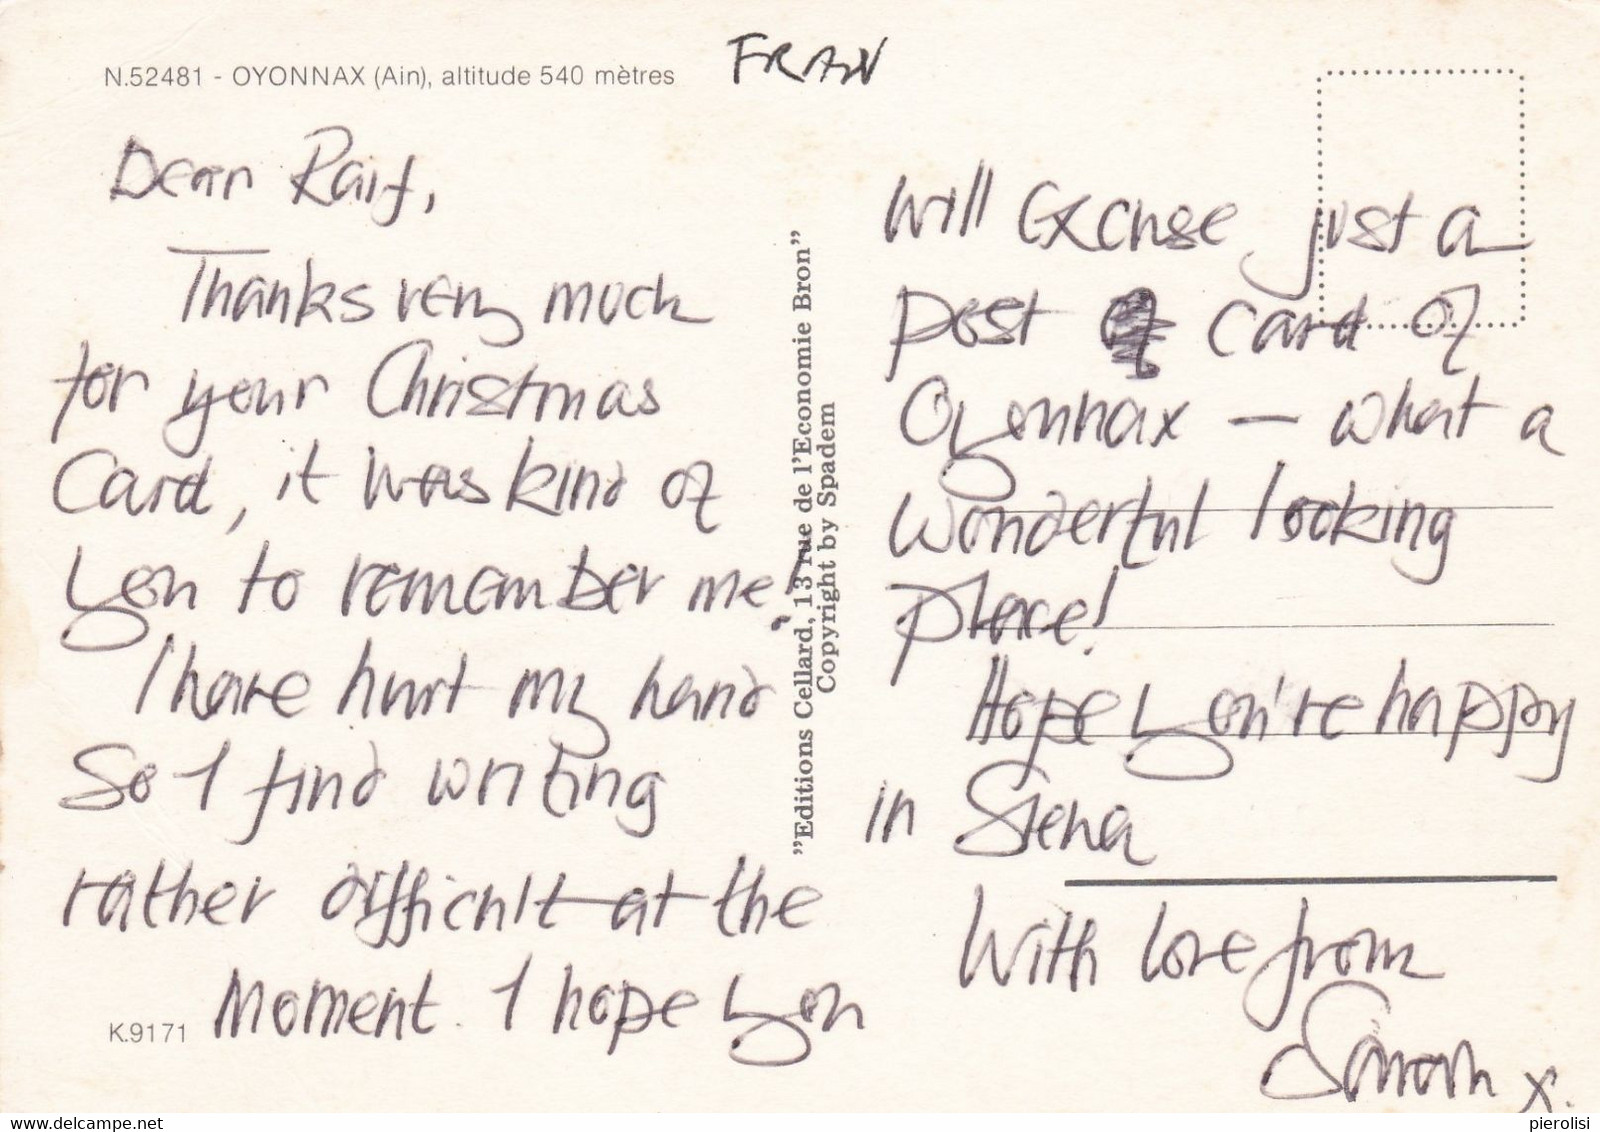 N.52481 - OYONNAX (Ain), altitude 540 mètres
FRAN
Dear Raif,
Thanks very much
for your Christmas
Card, it was kind of
you to remember me!
I have hurt my hand
So I find writing
rather difficult at the
Moment. I hope you
K.9171
"Editions Cellard, 13 rue de l'Economie Bron"
Copyright by Spadem
will excuse just a
post card of
Oyonnax — what a
wonderful looking
place!
Hope you're happy
in Siena
With love from
Sarah x.
www.delcampe.net
pierolisi